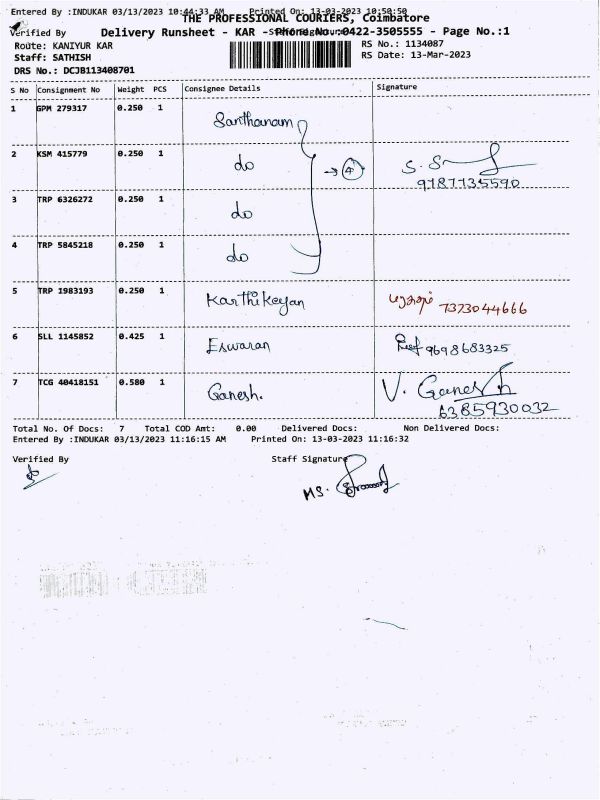 Entered By :INDUKAR 03/13/2023 10:44:33 AM Printed On: 13-03-2023 10:50:50
THE PROFESSIONAL COURIERS, Coimbatore
Verified By
Delivery Runsheet - KAR - Phone No.:0422-3505555 - Page No.:1
Staff Signature
Route: KANIYUR KAR
RS No.: 1134087
Staff: SATHISH
RS Date: 13-Mar-2023
DRS No.: DCJB113408701
S No Consignment No Weight PCS Consignee Details Signature
1 GPM 279317 0.250 1 Santhanam
2 KSM 415779 0.250 1 do → 4
9787735590
3 TRP 6326272 0.250 1 do
4 TRP 5845218 0.250 1 do
5 TRP 1983193 0.250 1 Karthikeyan 7373044666
6 SLL 1145852 0.425 1 Eswaran 9698683325
7 TCG 40418151 0.580 1 Ganesh. V. Ganesh
6385930032
Total No. Of Docs: 7 Total COD Amt: 0.00 Delivered Docs: Non Delivered Docs:
Entered By :INDUKAR 03/13/2023 11:16:15 AM Printed On: 13-03-2023 11:16:32
Verified By Staff Signature
MS.